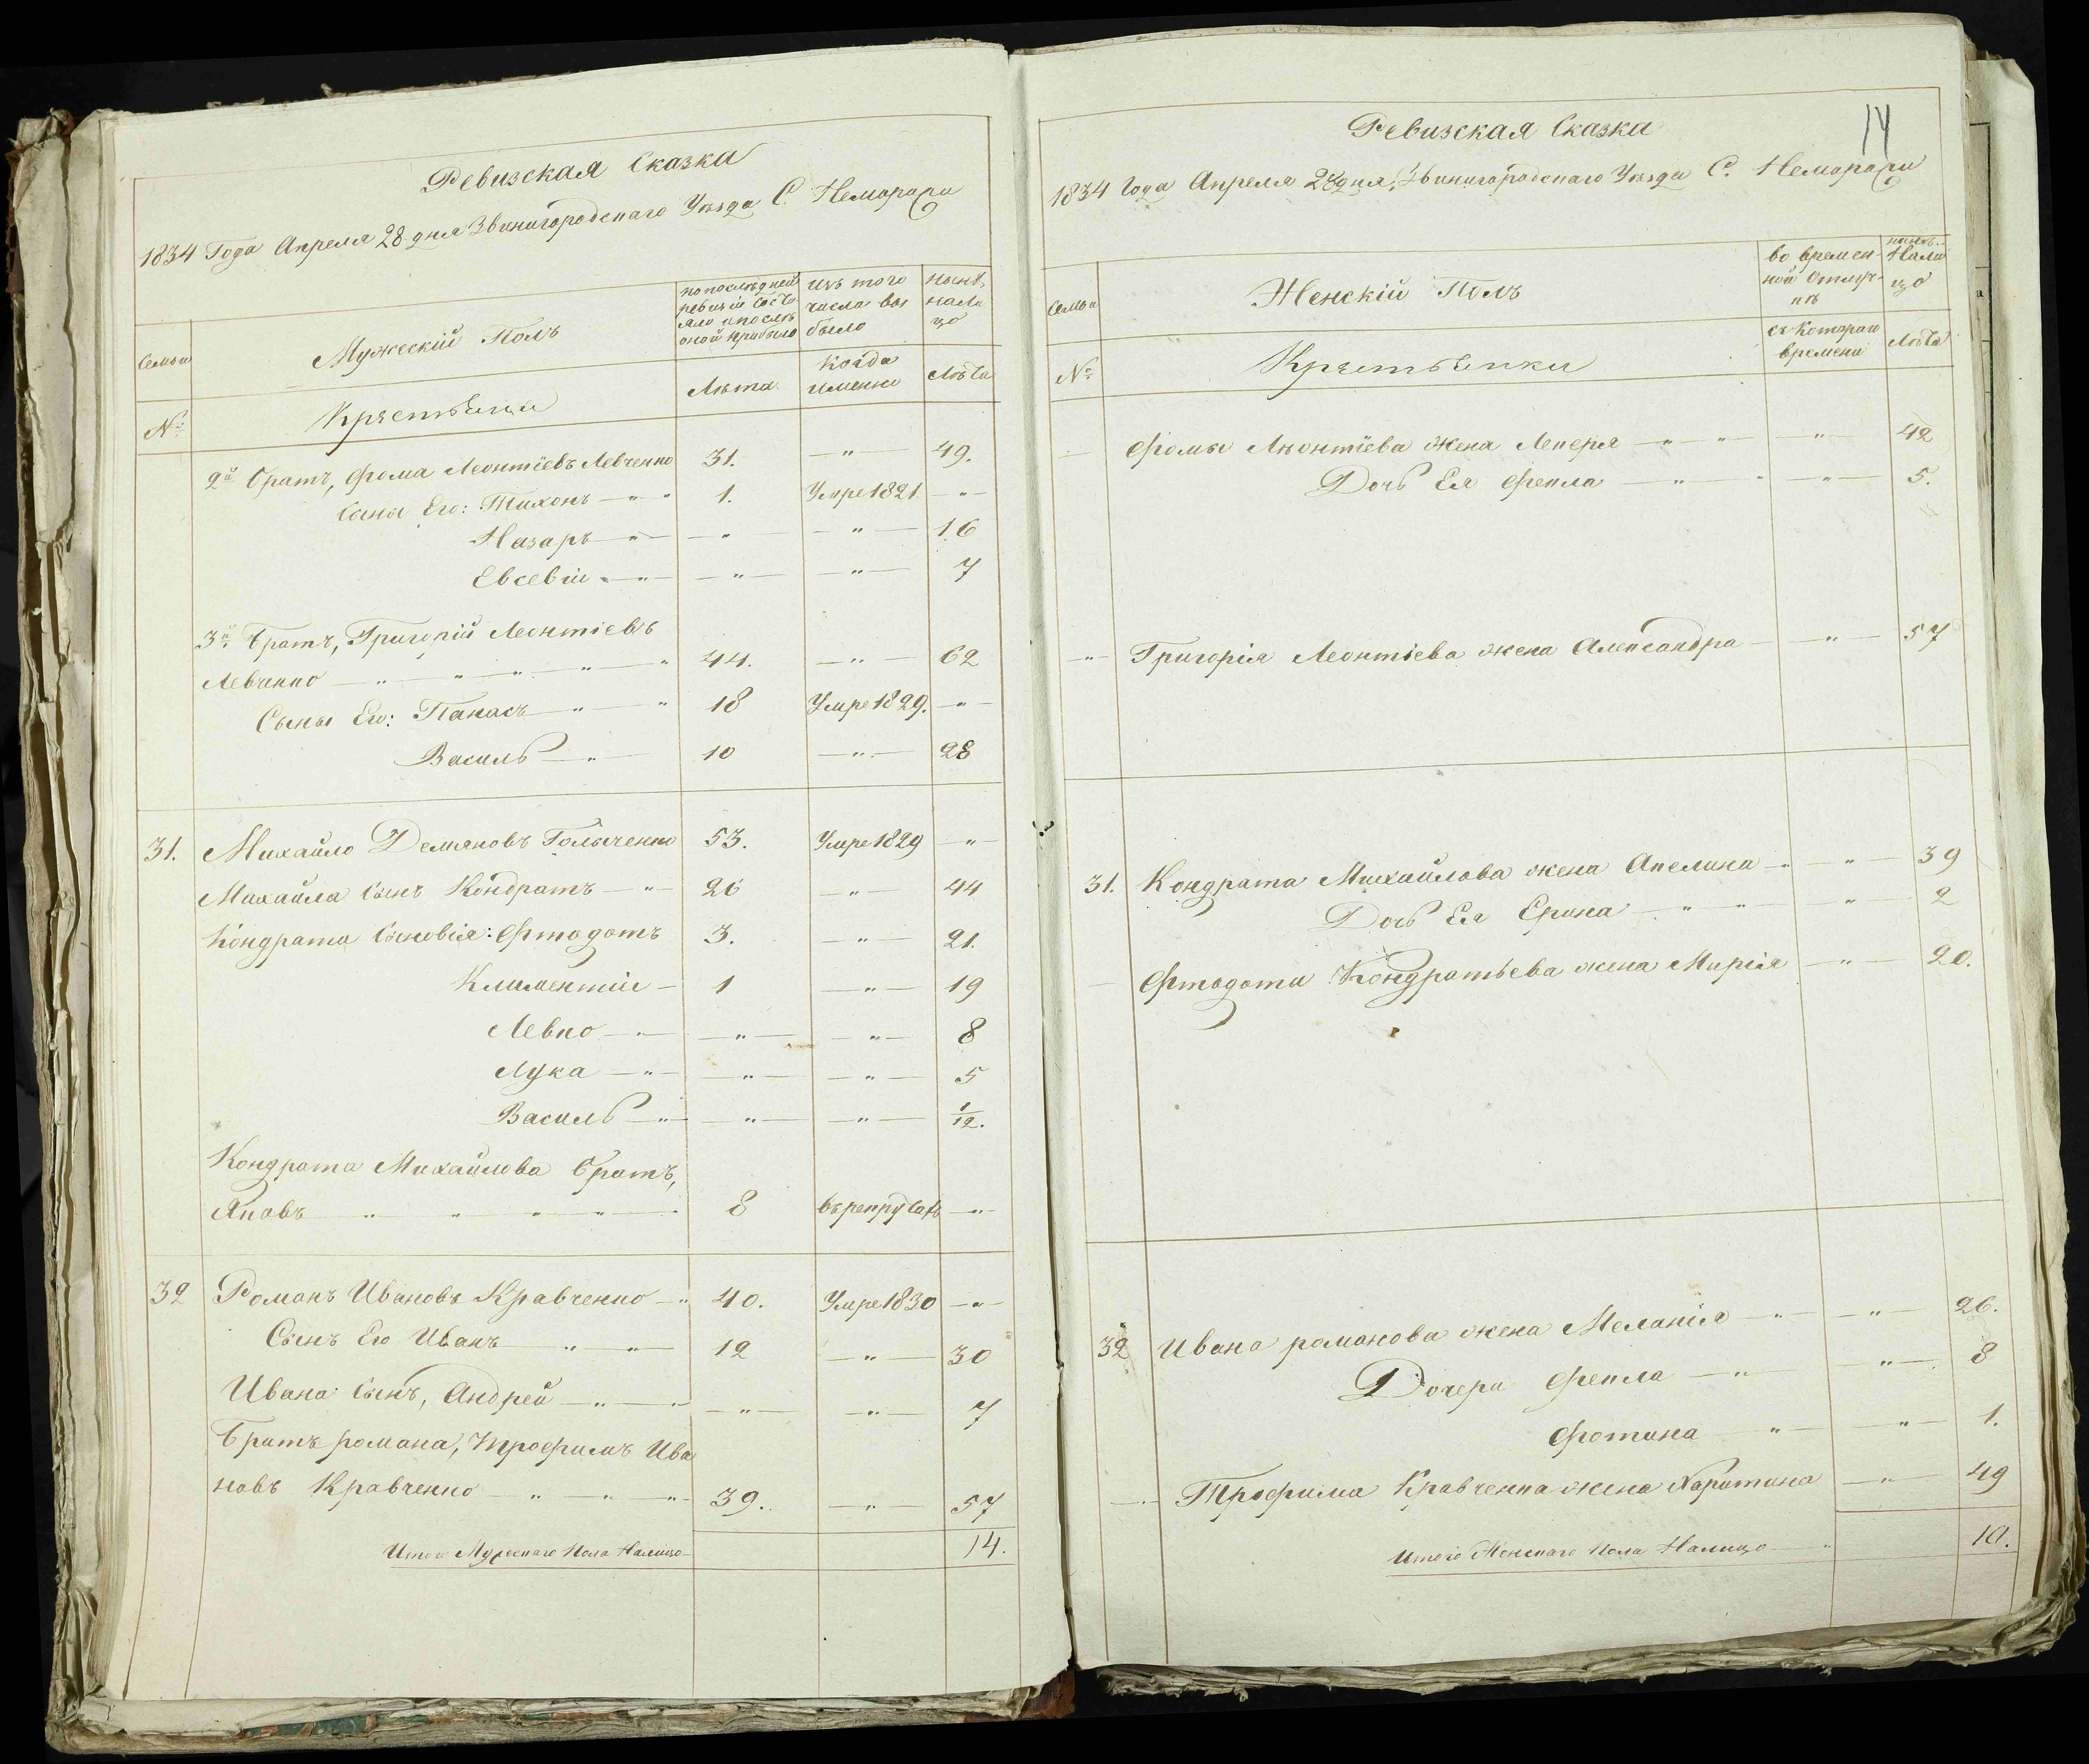 Ревизская Сказка
1834 Года Апреля 28 дня Звинигородскаго Уезда С. Неморожи
Семьи
Мужескій Полъ
по последней
ревизіи состо
яло и после
оной прибыло
изъ того
числа вы
было
ныне
нали
цо
№
Крестьяни
Лета
Когда
именно
Лета
2й братъ, Фома Леонтіевъ Левченко 31. — " — 49.
Сыны Его: Тихонъ — " " 1. Умре 1821. — " —
Назаръ — " — — " — " — 16
Евсевій — " — — " — — " — 7
3й братъ, Григорій Леонтіевъ
Левченко — " " " — " 44. — " — 62
Сыны Его: Панасъ — " — " 18 Умре 1829. — " —
Василь — " — 10 — " — 28
31. Михайло Демяновъ Голыченко 53. Умре 1829 — " —
Михайла Сынъ Кондратъ — " — 26 — " — 44
Кондрата Сыновія: Фтодотъ 3. — " — 21.
Климентій — 1 — " — 19
Левко — " — — " — — " — 8
Лука — " — — " — — " — 5
Василь — " — — " — — " — 1/12.
Кондрата Михайлова братъ,
Яковъ " " " " — 8 въ рекрутахъ — " —
32 Романъ Ивановъ Кравченко — " 40. Умре 1830 — " —
Сынъ Его Иванъ " — " — 12 — " — 30
Ивана Сынъ, Андрей — " — " — " — — " — 7
братъ романа, Трофимъ Ива
новъ Кравченко — " — " — " — 39. — " — 57
Итого Мужескаго Пола Налицо — 14.
14
Ревизская Сказка
1834 Года Апреля 28 дня, Звинигородскаго Уезда С. Неморожи
Семьи
Женскій Полъ
во времен
ной отлуч-
ке
Нали
цо
№
Крестьянки
съ которои
времени
Лета
— Фомы Леонтіева жена Лекеря — " — " — — " — 42
Дочь Ея Фекла — " — " — " — 5.
— " — Григорія Леонтіева жена Александра — — " — 57
31. Кондрата Михайлова жена Акелина — " — " — 39
Дочь Ея Ерина — " — " — — " — 2
— Фтодота Кондратьева жена Марія — " — 20.
32 Ивана романова жена Меланія — " — — " — 26.
Дочери Фекла — " — — " — 8
Фотина — " — — " — 1.
— Трофима Кравченка жена Харитина — " — 49
Итого Женскаго Пола Налицо — " 10.